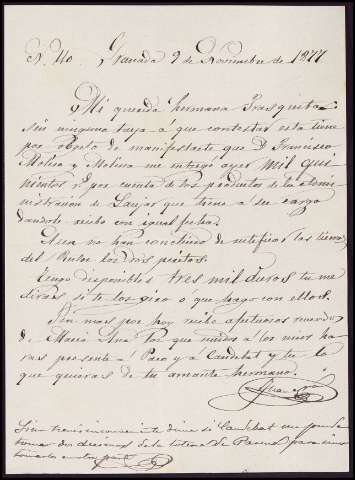 Nº 40. Granada 9 de Noviembre de 1877
Mi querida hermana Frasquita:
Sin ninguna tuya á que contestar esta tiene
por objeto de manifestarte que D. Francisco
Molina y Molina me entregó ayer mil qui
nientos r.s por cuenta de los productos de la admi
nistracion de Laujar que tiene a su cargo
dandole recibo con igual fecha.
Aun no han concluido de rectificar las
del los tres peritos.
Tengo disponibles tres mil duros tu me
diras si te los giro o que hago con ellos.
Sin mas por hoy recibe afectuosos recuerdos
de Maria Ana que unidos a los mios ha
ras presente á Paco y á Caridad y tu lo
que quieras de tu amante hermano.
dime si Caridad
tomar dos decimos de la loteria de para